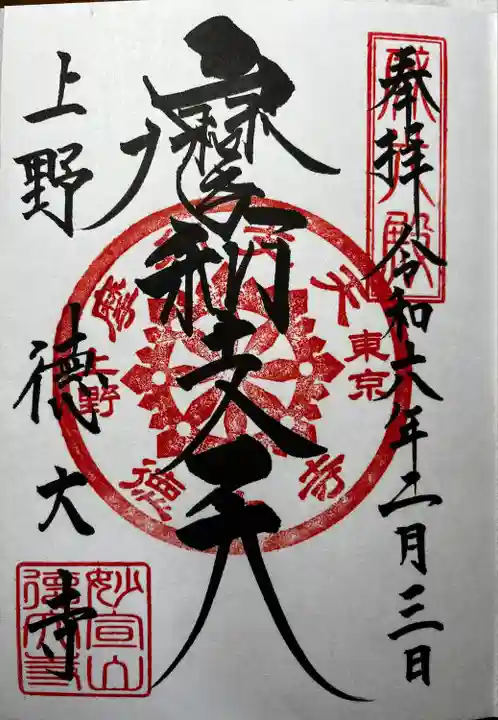 奉拝 令和六年二月三日
摩利支天
上野 徳大寺
天
東京
寺
徳
上野
摩
妙宣山
徳大寺